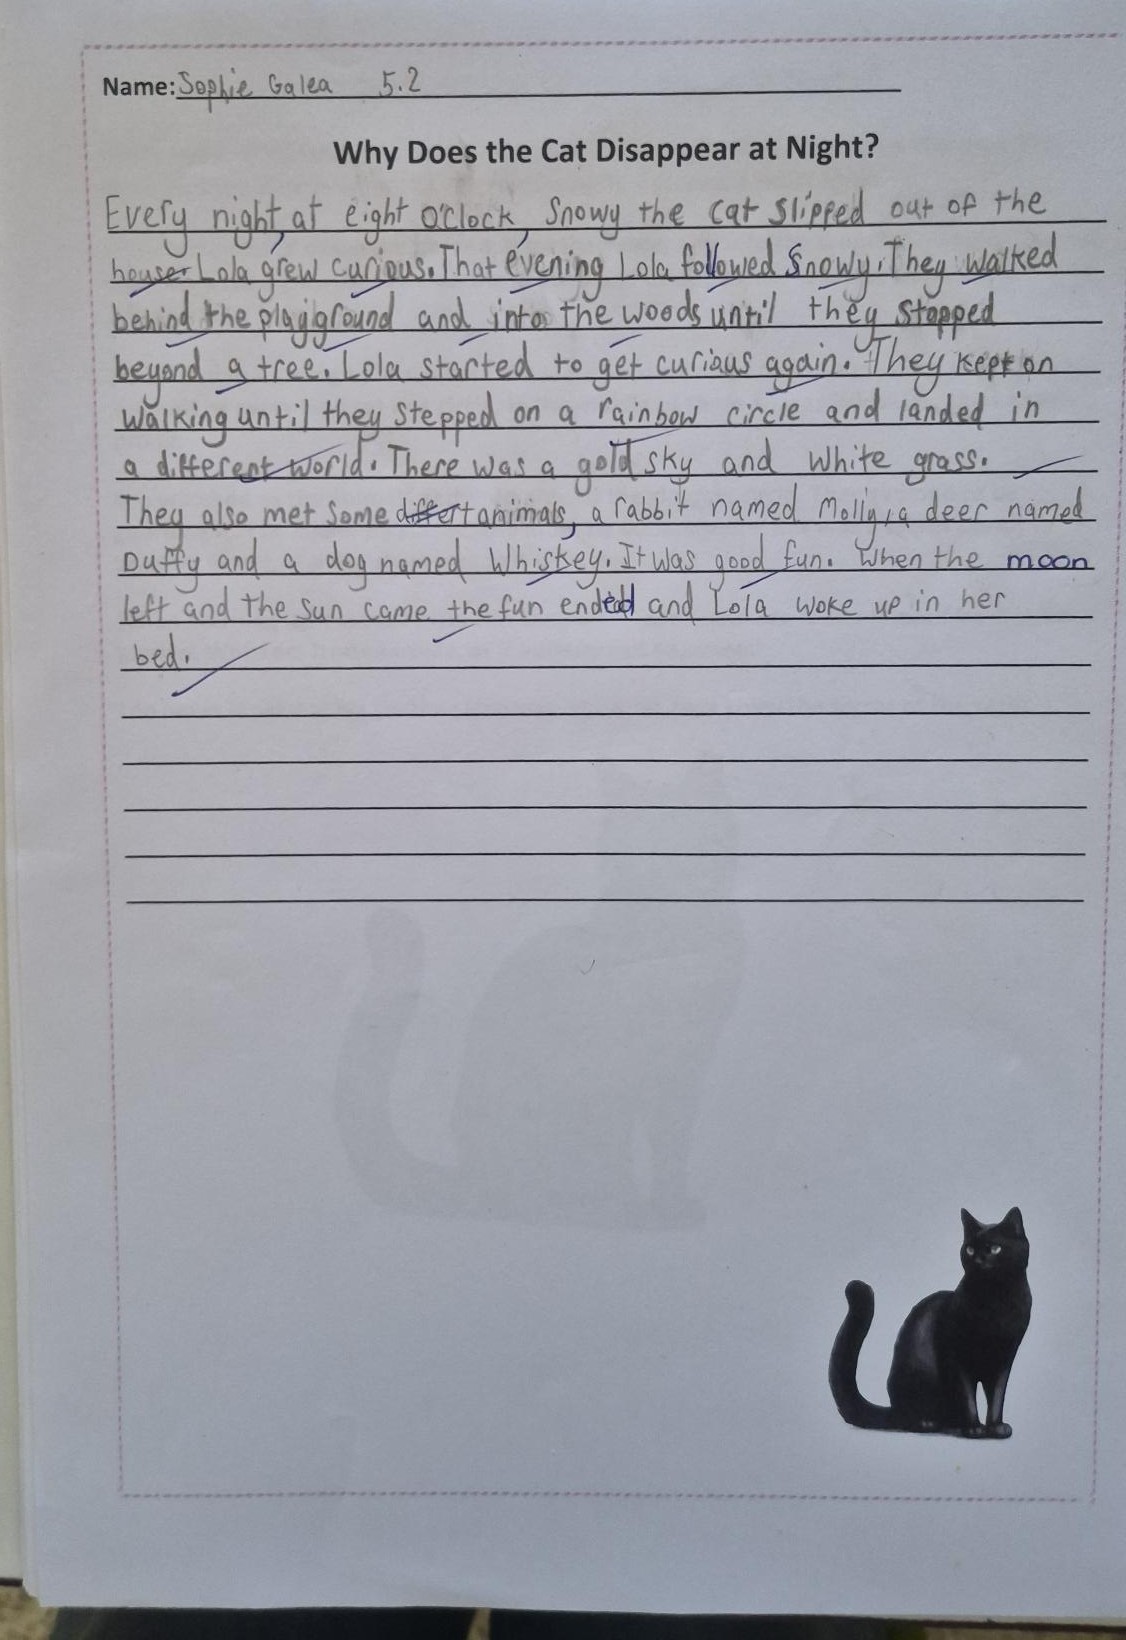 Name: Sophie Galea 5.2
Why Does the Cat Disappear at Night?
Every night, at eight O'clock, Snowy the cat slipped out of the
house. Lola grew curious. That evening Lola followed Snowy. They walked
behind the playground and into the woods until they stopped
beyond a tree. Lola started to get curious again. They kept on
walking until they stepped on a rainbow circle and landed in
a different world. There was a gold sky and white grass.
They also met some differt animals, a rabbit named Molly, a deer named
Duffy and a dog named Whiskey. It was good fun. When the moon
left and the sun came the fun ended and Lola woke up in her
bed.